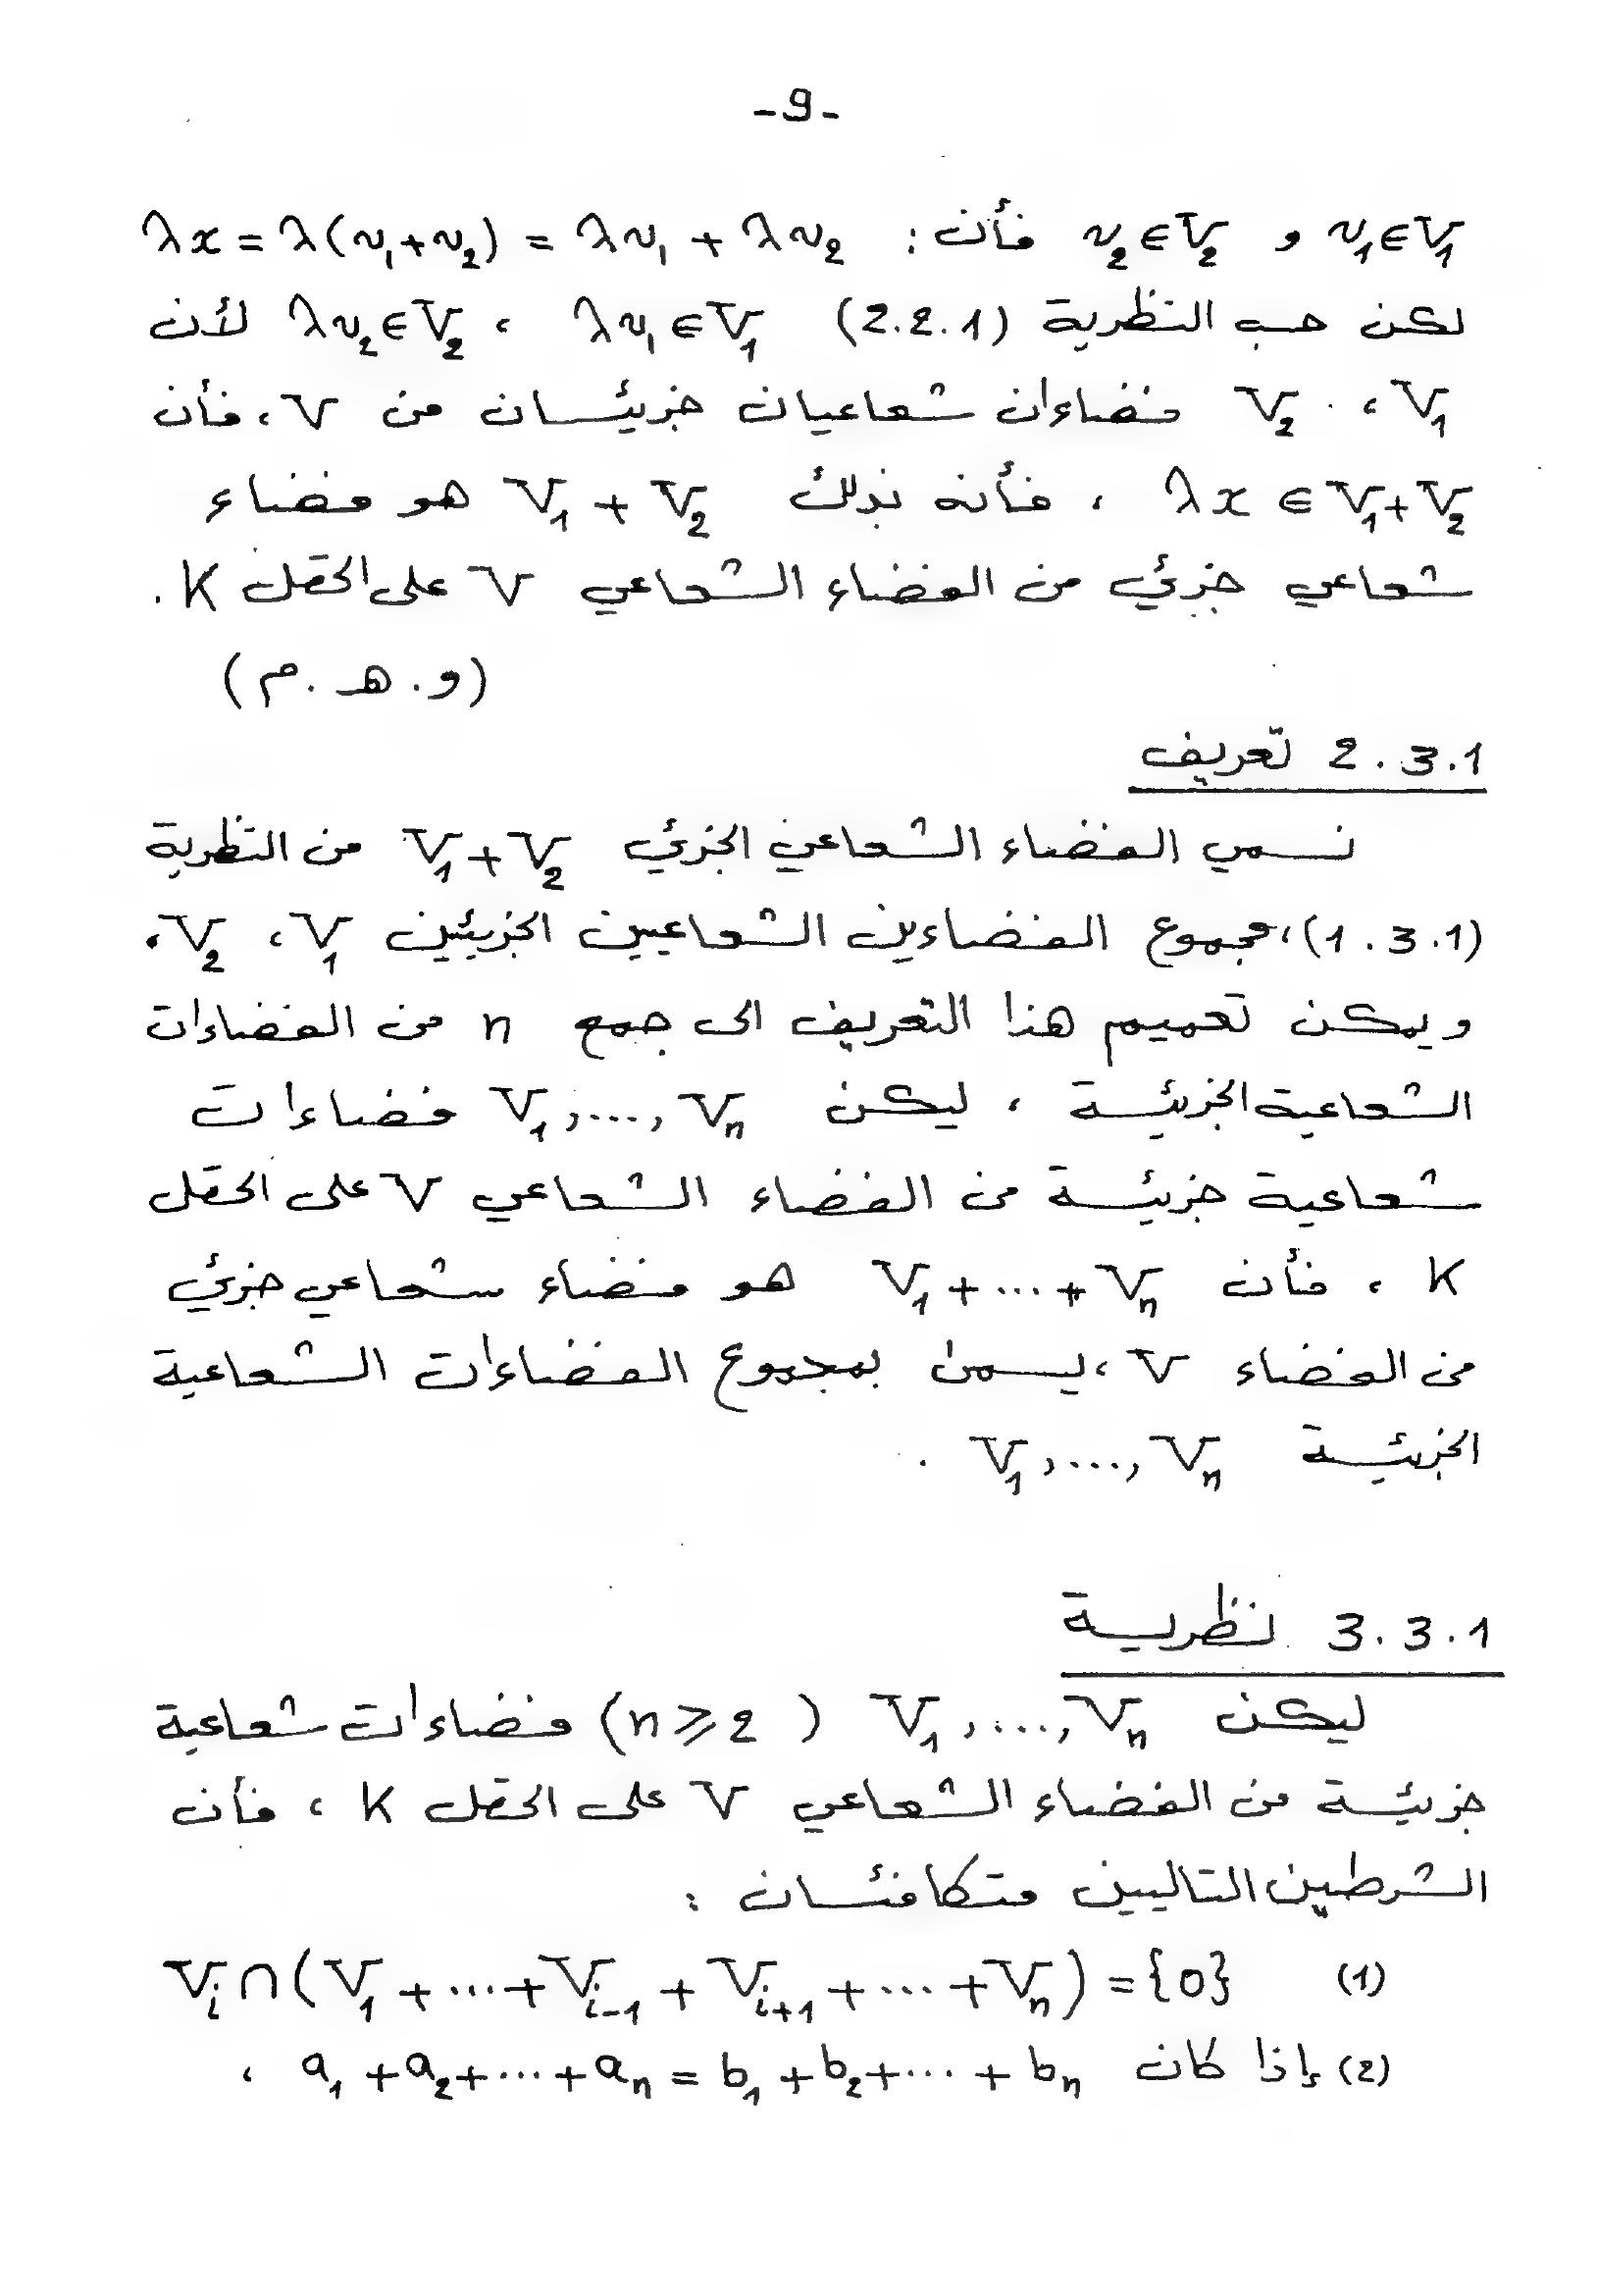 -9-
v₁∈V₁ و v₂∈V₂ فأن: λx = λ(v₁+v₂) = λv₁ + λv₂
لكن حسب النظرية (2.2.1) λv₁∈V₁ ، λv₂∈V₂ لأن
V₁ ، V₂ فضاءان شعاعيان جزيئسان من V ، فأن
λx ∈ V₁+V₂ ، فأنه بذلك V₁ + V₂ هو فضاء
شعاعي جزئي من الفضاء الشعاعي V على الحقل K .
(و . هـ . م)
2.3.1 تعريف
نسمي الفضاء الشعاعي الجزئي V₁+V₂ من النظرية
(1.3.1)، مجموع الفضاءين الشعاعيين الجزيئين V₁ ، V₂ .
ويمكن تعميم هذا التعريف الى جمع n من الفضاءات
الشعاعية الجزيئسة ، ليكن V₁,...,Vₙ فضاءات
شعاعية جزيئسة من الفضاء الشعاعي V على الحقل
K ، فأن V₁+...+Vₙ هو فضاء شعاعي جزئي
من الفضاء V ، يسمى بمجموع الفضاءات الشعاعية
الجزيئسة V₁,...,Vₙ .
3.3.1 نظرية
ليكن V₁,...,Vₙ (n ⩾ 2) فضاءات شعاعية
جزيئسة من الفضاء الشعاعي V على الحقل K ، فأن
الشرطين التاليين متكافئسان :
(1) Vᵢ∩(V₁+...+Vᵢ₋₁+Vᵢ₊₁+...+Vₙ) = {0}
(2) إذا كان a₁+a₂+...+aₙ = b₁+b₂+...+bₙ ،